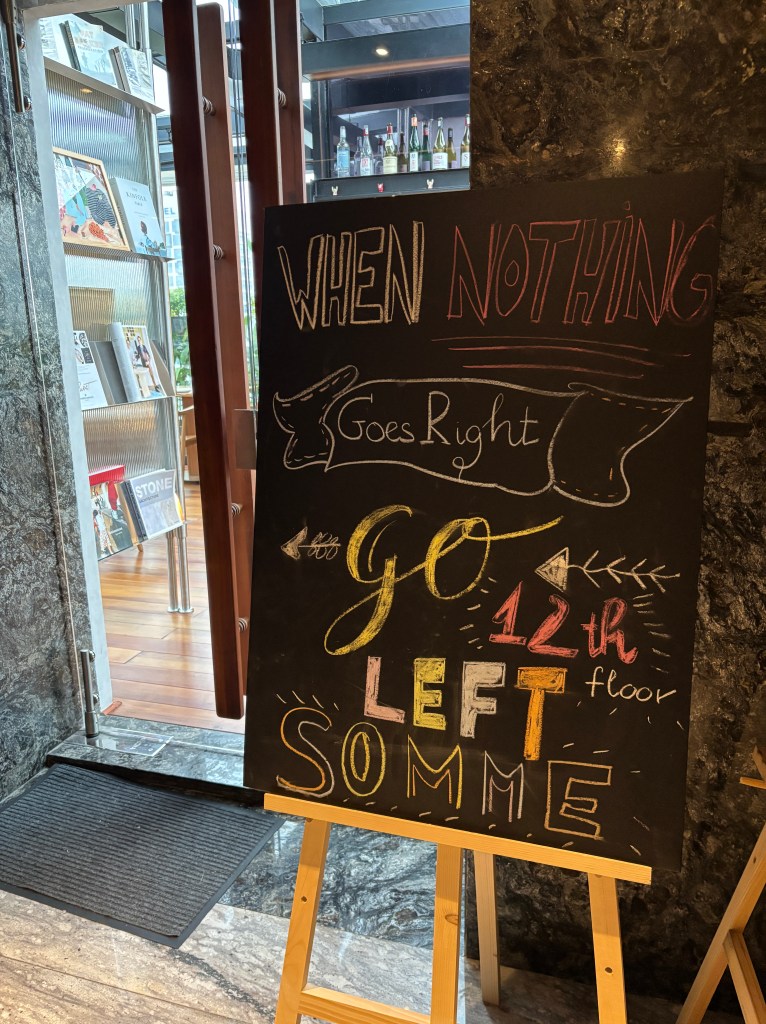 WHEN NOTHING
Goes Right
GO
12th
LEFT
floor
SOMME
STONE